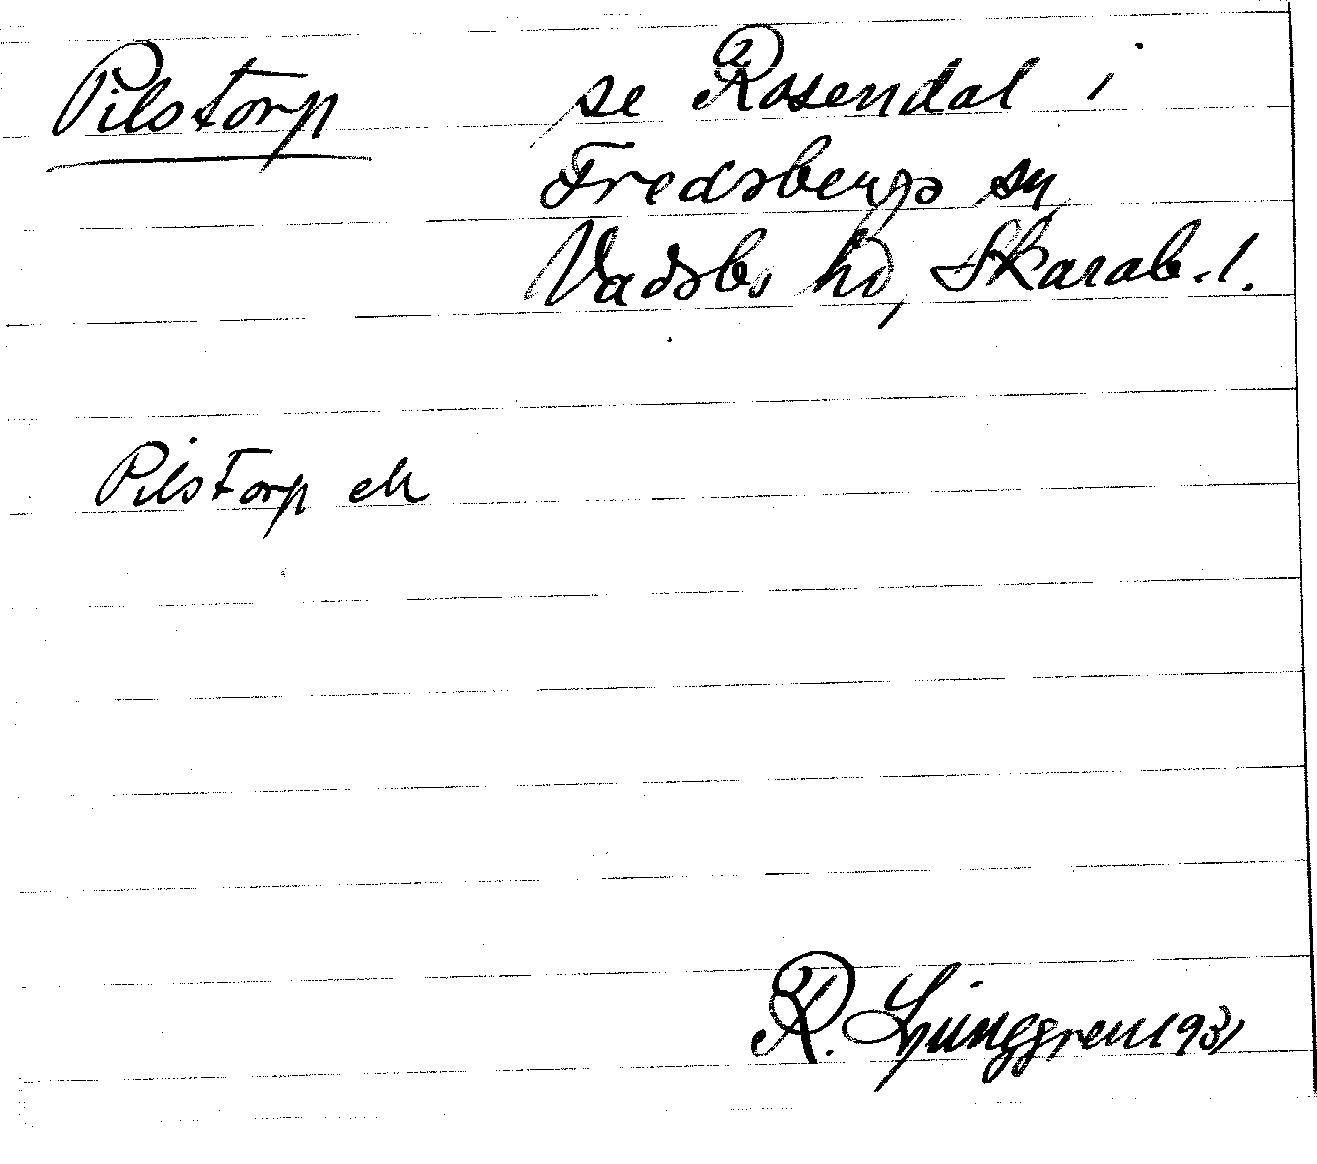 Pilstorp se Rosendal i
Fredsbergs sn,
Vadsbo hd, Skarab. l.
Pilstorp ek
R. Ljunggren 1931